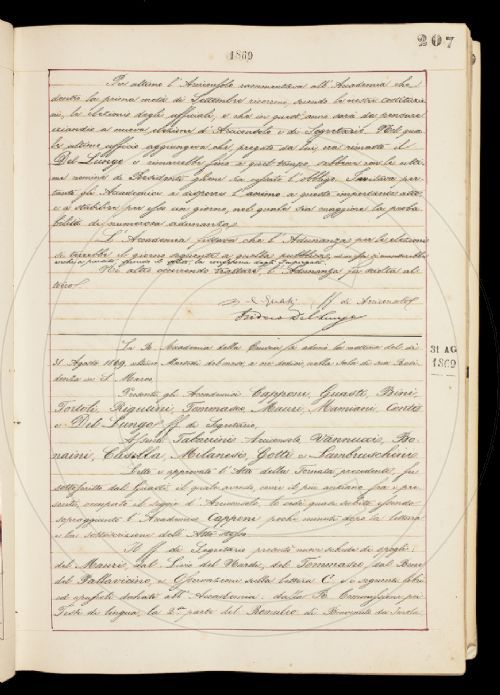 207
1869
Per ultimo l'Arciconsolo rammentava all'Accademia che
dentro la prima metà di Settembre ricorrono, secondo le nostre costituzio
ni, le elezioni degli ufficiali, e che in quest'anno sarà da pensare
eziandio a nuova elezione d'Arciconsolo e di Segretario. Nel qua
le ultimo ufficio aggiungeva che, pregato da lui, era rimasto il
Del Lungo e rimarrebbe fino a quel tempo, sebbene con la
nomina di Presidente gliene sia cessato l'obbligo. Invitava per
tanto gli Accademici a disporre l'animo a questo importante atto
e a stabilire per esso un giorno, nel quale sia maggiore la proba
bilità di numerosa adunanza.
L'Accademia fissava che l'Adunanza per le elezioni
si terrebbe il giorno seguente a quella pubblica,
Nè altro occorrendo trattare, l'Adunanza fu sciolta al
tocco.
C. Guasti ff. di Arciconsolo
Isidoro Del Lungo
31 AG
1869
La R. Accademia della Crusca si adunò la mattina del dì
31 Agosto 1869, ultimo Martedì del mese, a ore dodici, nella Sala di sua Resi
denza in S. Marco.
Presenti gli Accademici Capponi, Guasti, Bini,
Tortoli, Rigutini, Tommaseo, Mauri, Mamiani, Conti
e Del Lungo ff. di Segretario.
Assenti Tabarrini Arciconsolo, Vannucci, Bo
naini, Casella, Milanesi, Gotti e Lambruschini.
Letto e approvato l'Atto della Tornata precedente, fu
sottoscritto dal Guasti, il quale avendo, come il più anziano fra i pre
senti, occupato il seggio d'Arciconsolo, lo cedè quasi subito essendo
sopraggiunto l'Accademico Capponi pochi minuti dopo la lettura
e la sottoscrizione dell'Atto stesso.
Il ff. di Segretario presentò nuove schede di spogli:
del Mauri, dal Livio del Nardi; del Tommaseo, dal Boezio
del Pallavicino, e Osservazioni sulla lettera C. e i seguenti libri
ed opuscoli donati all'Accademia: dalla R. Commissione pei
Testi di lingua, la 2ª parte del Romuleo di Benvenuto da Imola